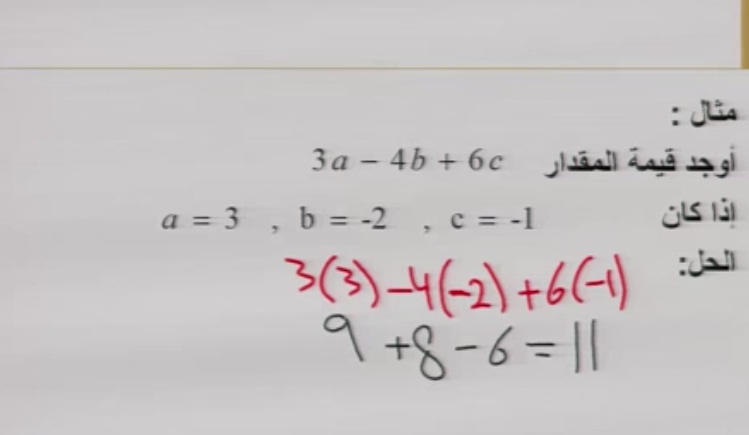 مثال :
أوجد قيمة المقدار 3a − 4b + 6c
إذا كان a = 3 , b = -2 , c = -1
الحل:
3(3) −4(−2) +6(−1)
9 +8 −6 = 11